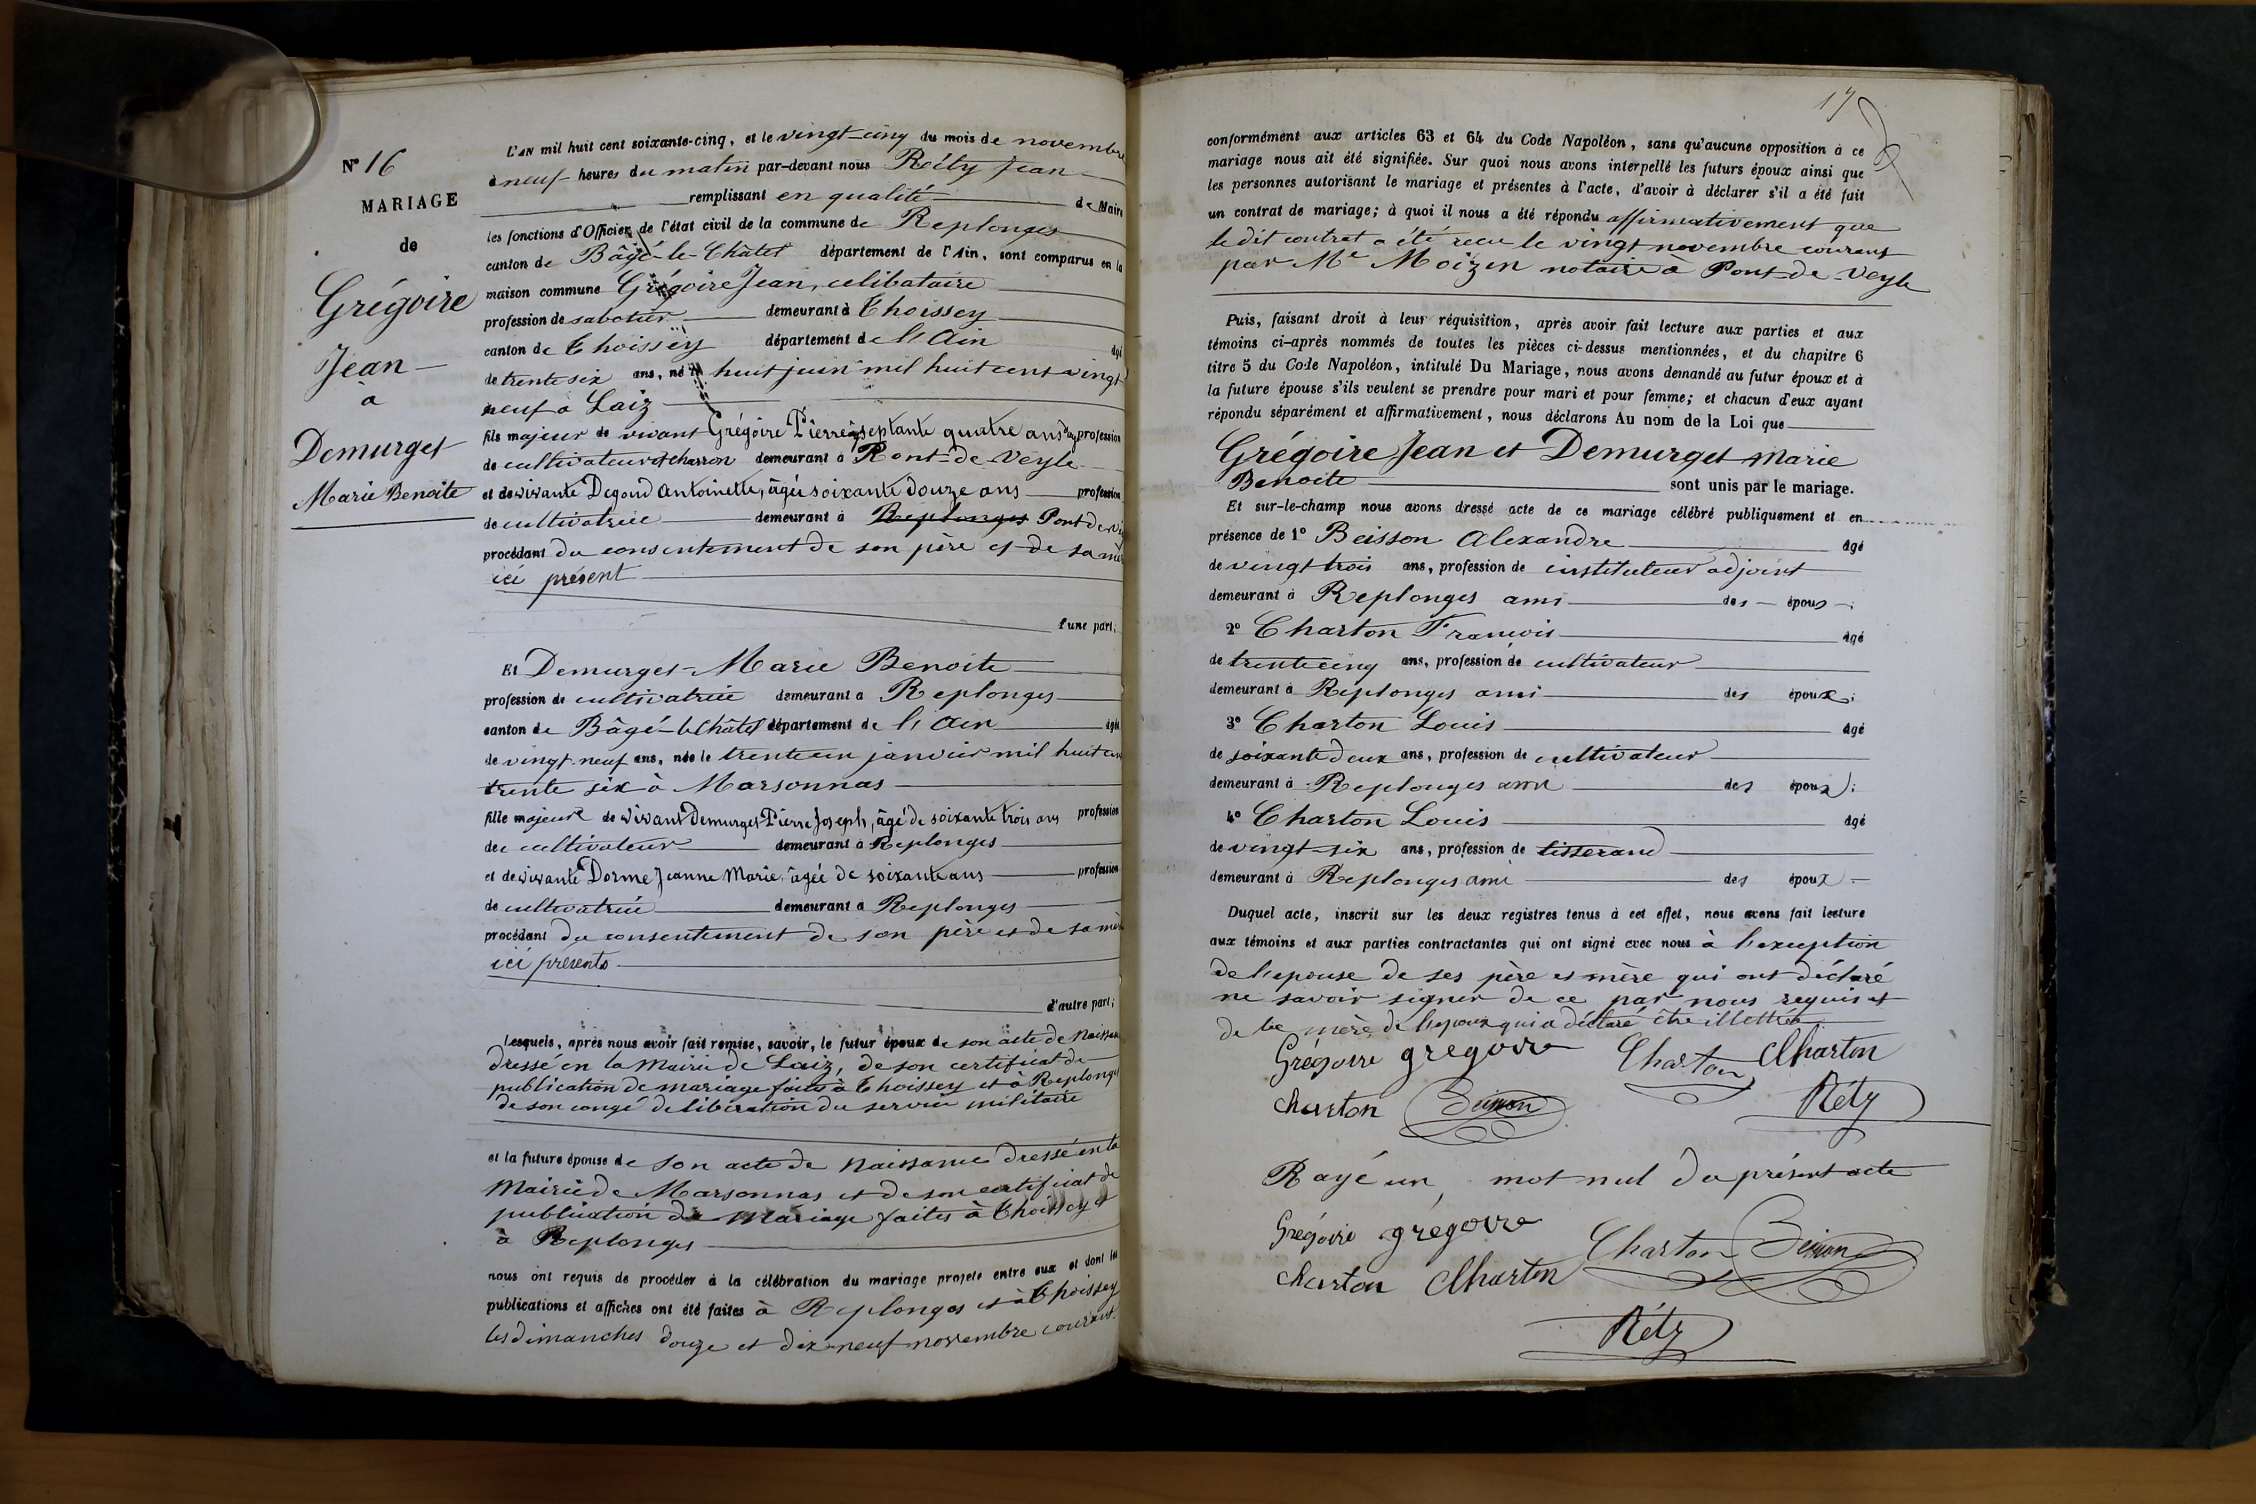 N° 16
MARIAGE
de
Grégoire
Jean
à
Demurget
Marie Benoite
L'AN mil huit cent soixante-cinq, et le vingt-cinq du mois de novembre
à neuf heures du matin par-devant nous Réty Jean
remplissant en qualité de Maire
les fonctions d'Officier de l'état civil de la commune de Replonges
canton de Bâgé-le-Châtel département de l'Ain, sont comparus en la
maison commune Grégoire Jean, celibataire
profession de sabotier demeurant à Thoissey
canton de Thoissey département de l'Ain âgé
de trente six ans, né le huit juin mil huit cent vingt
neuf à Laiz
fils majeur de vivant Grégoire Pierre âgé septante quatre ans profession
de cultivateur et charron demeurant à Pont-de-Veyle
et de vivante Degoud Antoinette, âgée soixante douze ans profession
de cultivatrice demeurant à Replonges Pont de Vey
procédant du consentement de son père et de sa mère
ici présent
l'une part;
Et Demurget Marie Benoite
profession de cultivatrice demeurant à Replonges
canton de Bâgé-le Châtel département de l'Ain âgée
de vingt-neuf ans, née le trente un janvier mil huit cent
trente six à Marsonnas
fille majeure de vivant Demurget Pierre Joseph, âgé de soixante trois ans profession
de cultivateur demeurant à Replonges
et de vivante Dorme Jeanne Marie, âgée de soixante ans profession
de cultivatrice demeurant à Replonges
procédant du consentement de son père et de sa mère
ici présents
d'autre part;
Lesquels, après nous avoir fait remise, savoir, le futur époux de son acte de naissance
dressé en la Mairie de Laiz, de son certificat de
publication de mariage faite à Thoissey et à Replonges
de son congé de libération du service militaire
et la future épouse de son acte de naissance dressé en la
Mairie de Marsonnas et de son certificat de
publication de mariage faites à Thoissey et
à Replonges
nous ont requis de procéder à la célébration du mariage projeté entre eux et dont les
publications et affiches ont été faites à Replonges et à Thoissey
les dimanches douze et dix-neuf novembre courant.
17
conformément aux articles 63 et 64 du Code Napoléon, sans qu'aucune opposition à ce
mariage nous ait été signifiée. Sur quoi nous avons interpellé les futurs époux ainsi que
les personnes autorisant le mariage et présentes à l'acte, d'avoir à déclarer s'il a été fait
un contrat de mariage; à quoi il nous a été répondu affirmativement que
le dit contrat a été reçu le vingt novembre courant
par Me Moizin notaire à Pont-de-Veyle
Puis, faisant droit à leur réquisition, après avoir fait lecture aux parties et aux
témoins ci-après nommés de toutes les pièces ci-dessus mentionnées, et du chapitre 6
titre 5 du Code Napoléon, intitulé Du Mariage, nous avons demandé au futur époux et à
la future épouse s'ils veulent se prendre pour mari et pour femme; et chacun d'eux ayant
répondu séparément et affirmativement, nous déclarons Au nom de la Loi que
Grégoire Jean et Demurget Marie
Benoite sont unis par le mariage.
Et sur-le-champ nous avons dressé acte de ce mariage célébré publiquement et en
présence de 1° Beisson Alexandre âgé
de vingt trois ans, profession de instituteur adjoint
demeurant à Replonges ami des époux;
2° Charton François âgé
de trente cinq ans, profession de cultivateur
demeurant à Replonges ami des époux;
3° Charton Louis âgé
de soixante deux ans, profession de cultivateur
demeurant à Replonges ami des époux;
4° Charton Louis âgé
de vingt-six ans, profession de tisserand
demeurant à Replonges ami des époux
Duquel acte, inscrit sur les deux registres tenus à cet effet, nous avons fait lecture
aux témoins et aux parties contractantes qui ont signé avec nous à l'exception
de l'epouse de ses père et mère qui ont déclaré
ne savoir signer de ce par nous requis et
de la mère de l'epoux qui a déclaré être illettrée
Grégoire gregoire Charton Charton
Charton Beisson Réty
Rayé un mot nul du présent acte
Grégoire grégoire Charton Beisson
Charton Charton
Réty